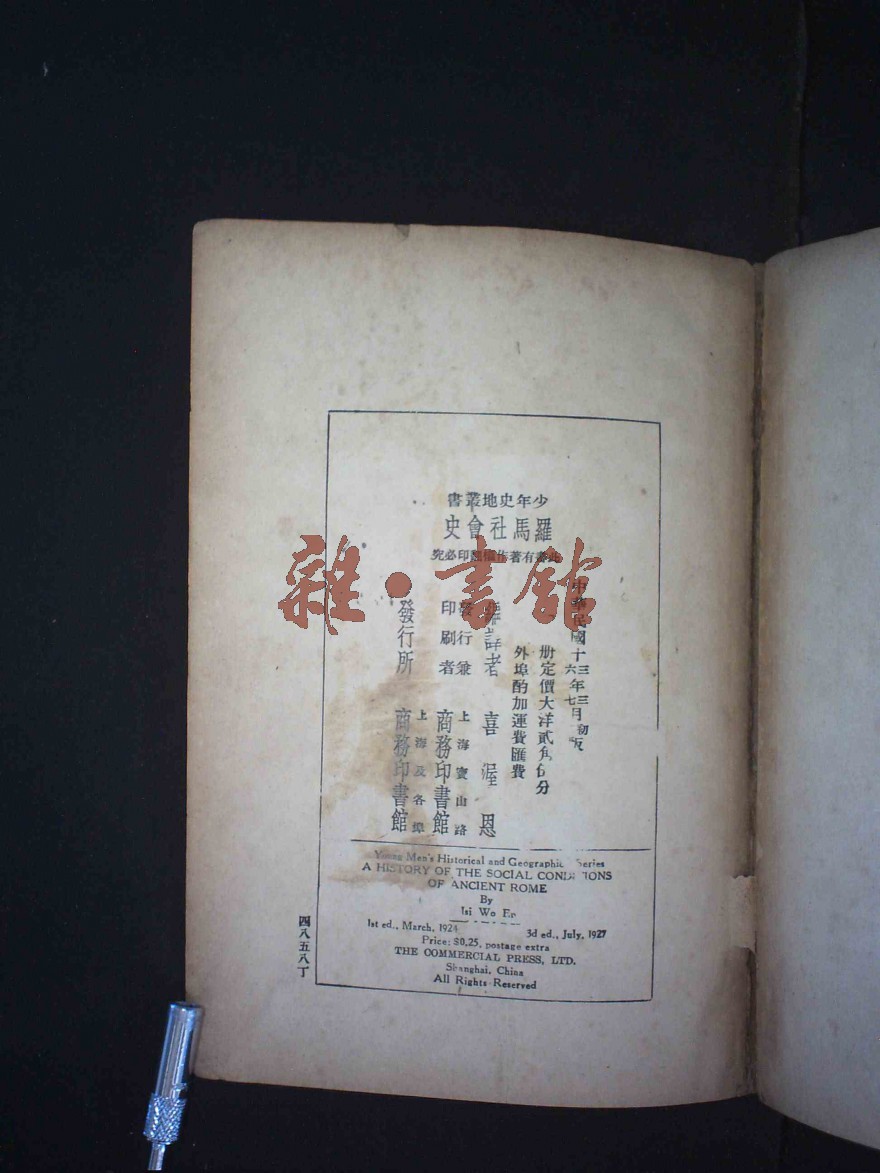 少年史地叢書
羅馬社會史
此書有著作權翻印必究
中華民國十三年三月初版
六年七月
册定價大洋貳角伍分
外埠酌加運費匯費
譯者 喜渥恩
發行兼
印刷者
上海寶山路
商務印書館
發行所
上海及各埠
商務印書館
Young Men's Historical and Geographic Series
A HISTORY OF THE SOCIAL CONDITIONS
OF ANCIENT ROME
By
Wo En
1st ed., March, 1924 3d ed., July, 1927
Price: $0.25, postage extra
THE COMMERCIAL PRESS, LTD.
Shanghai, China
All Rights Reserved
四八五八丁
雜·書館